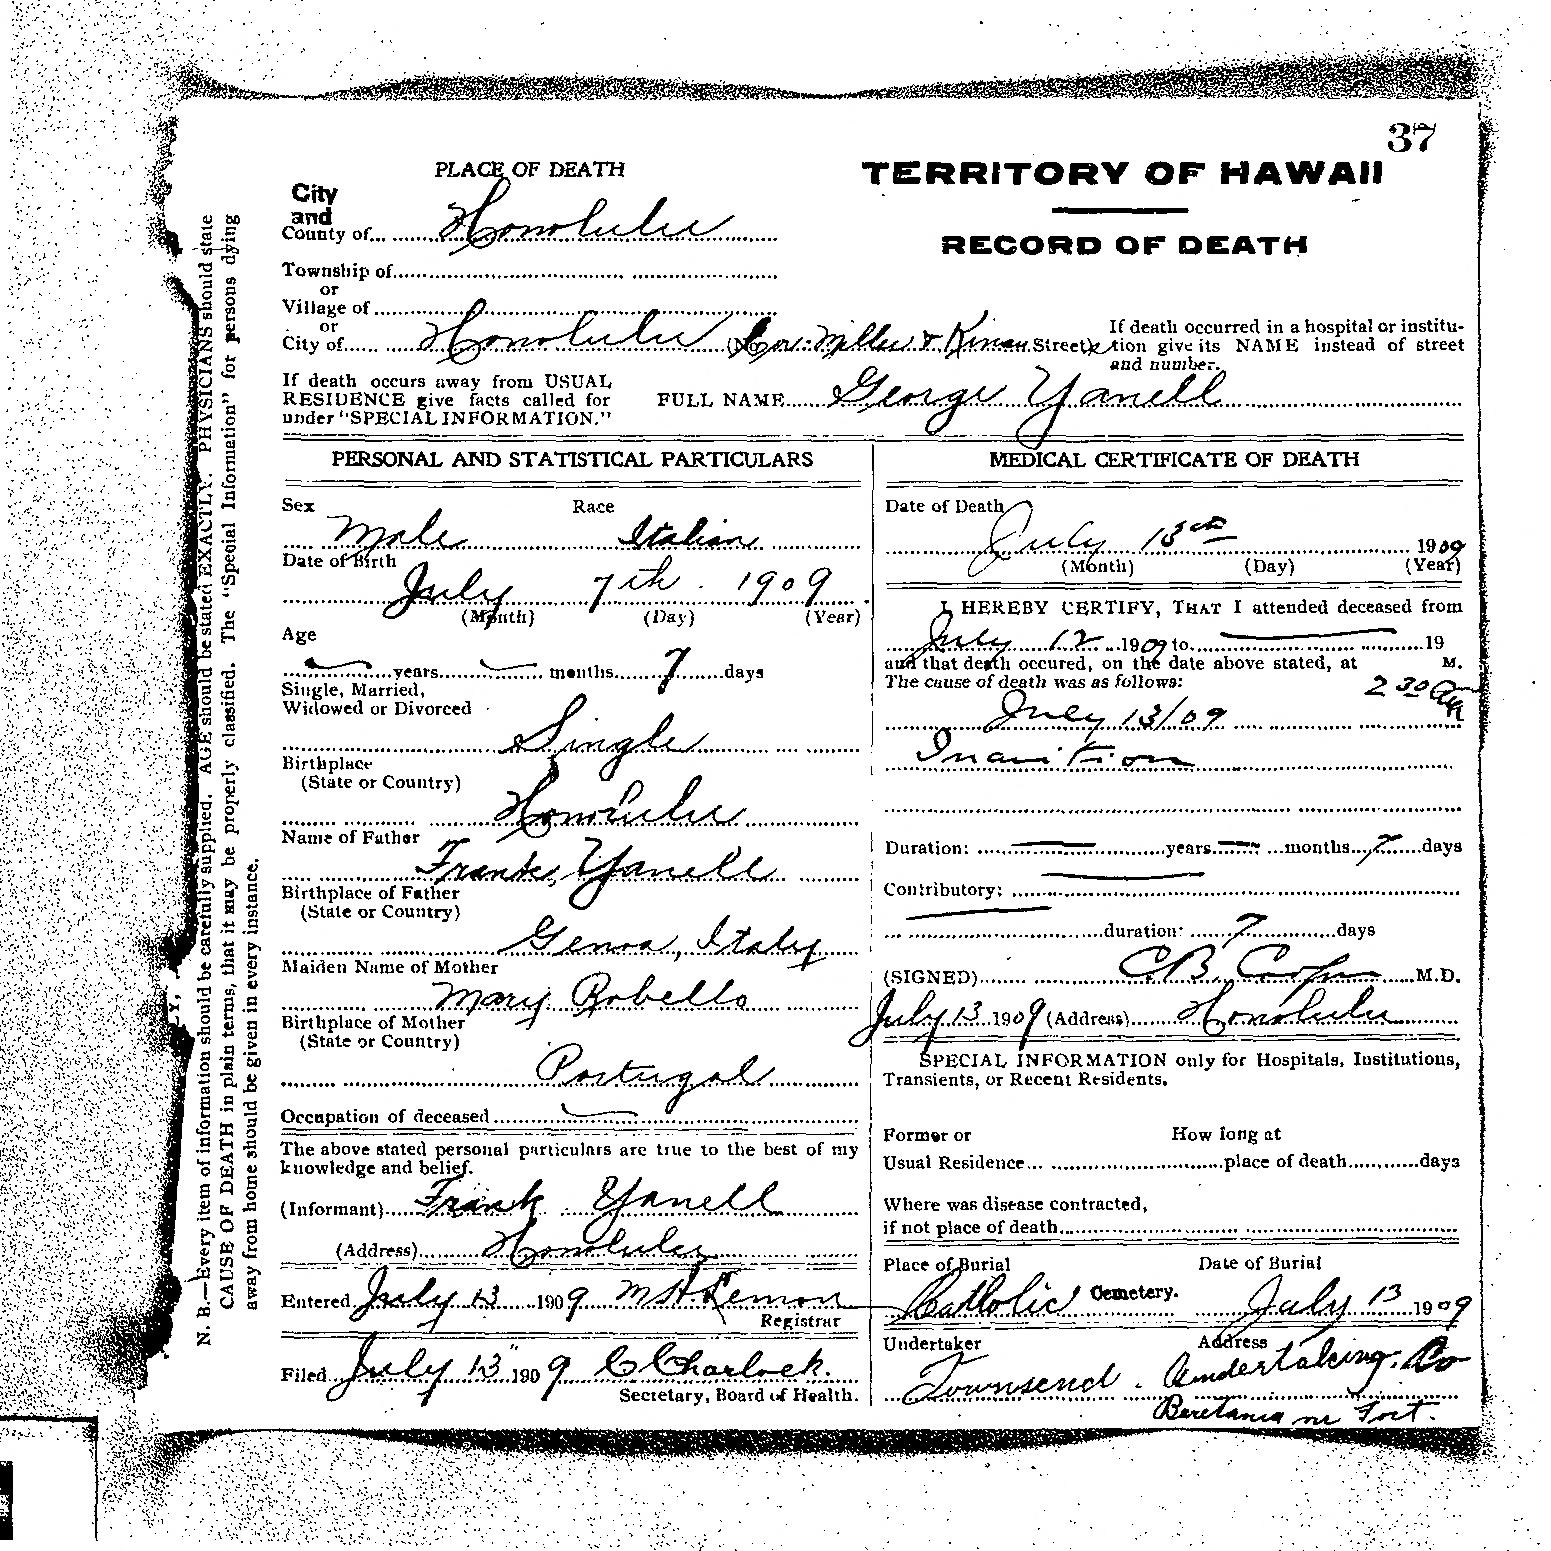 37
TERRITORY OF HAWAII
RECORD OF DEATH
PLACE OF DEATH
City
and
County of... Honolulu
Township of
or
Village of
or
City of Honolulu (No Cor. Miller & Kinau Street)
If death occurred in a hospital or institu-
tion give its NAME instead of street
and number.
If death occurs away from USUAL
RESIDENCE give facts called for
under "SPECIAL INFORMATION."
FULL NAME George Yanell
PERSONAL AND STATISTICAL PARTICULARS
Sex Race
Male Italian
Date of Birth
July 7th. 1909
(Month) (Day) (Year)
Age
years months 7 days
Single, Married,
Widowed or Divorced
Single
Birthplace
(State or Country)
Honolulu
Name of Father
Frank Yanell
Birthplace of Father
(State or Country)
Genoa, Italy
Maiden Name of Mother
Mary Robello
Birthplace of Mother
(State or Country)
Portugal
Occupation of deceased
The above stated personal particulars are true to the best of my
knowledge and belief.
(Informant) Frank Yanell
(Address) Honolulu
Entered July 13 1909 M H Lemon
Registrar
Filed July 13 1909 C Charlock.
Secretary, Board of Health.
MEDICAL CERTIFICATE OF DEATH
Date of Death
July 13th 1909
(Month) (Day) (Year)
I HEREBY CERTIFY, THAT I attended deceased from
July 12 1909 to 19
and that death occured, on the date above stated, at M.
The cause of death was as follows: 2 30 am
July 13/09
Inanition
Duration: years months 7 days
Contributory:
duration: 7 days
(SIGNED) C.B. Cooper M.D.
July 13 1909 (Address) Honolulu
SPECIAL INFORMATION only for Hospitals, Institutions,
Transients, or Recent Residents.
Former or How long at
Usual Residence place of death days
Where was disease contracted,
if not place of death
Place of Burial Date of Burial
Catholic Cemetery. July 13 1909
Undertaker Address
Townsend Undertaking. Co
Beretania nr Fort.
N. B.—Every item of information should be carefully supplied. AGE should be stated EXACTLY. PHYSICIANS should state
CAUSE OF DEATH in plain terms, that it may be properly classified. The "Special Information" for persons dying
away from home should be given in every instance.